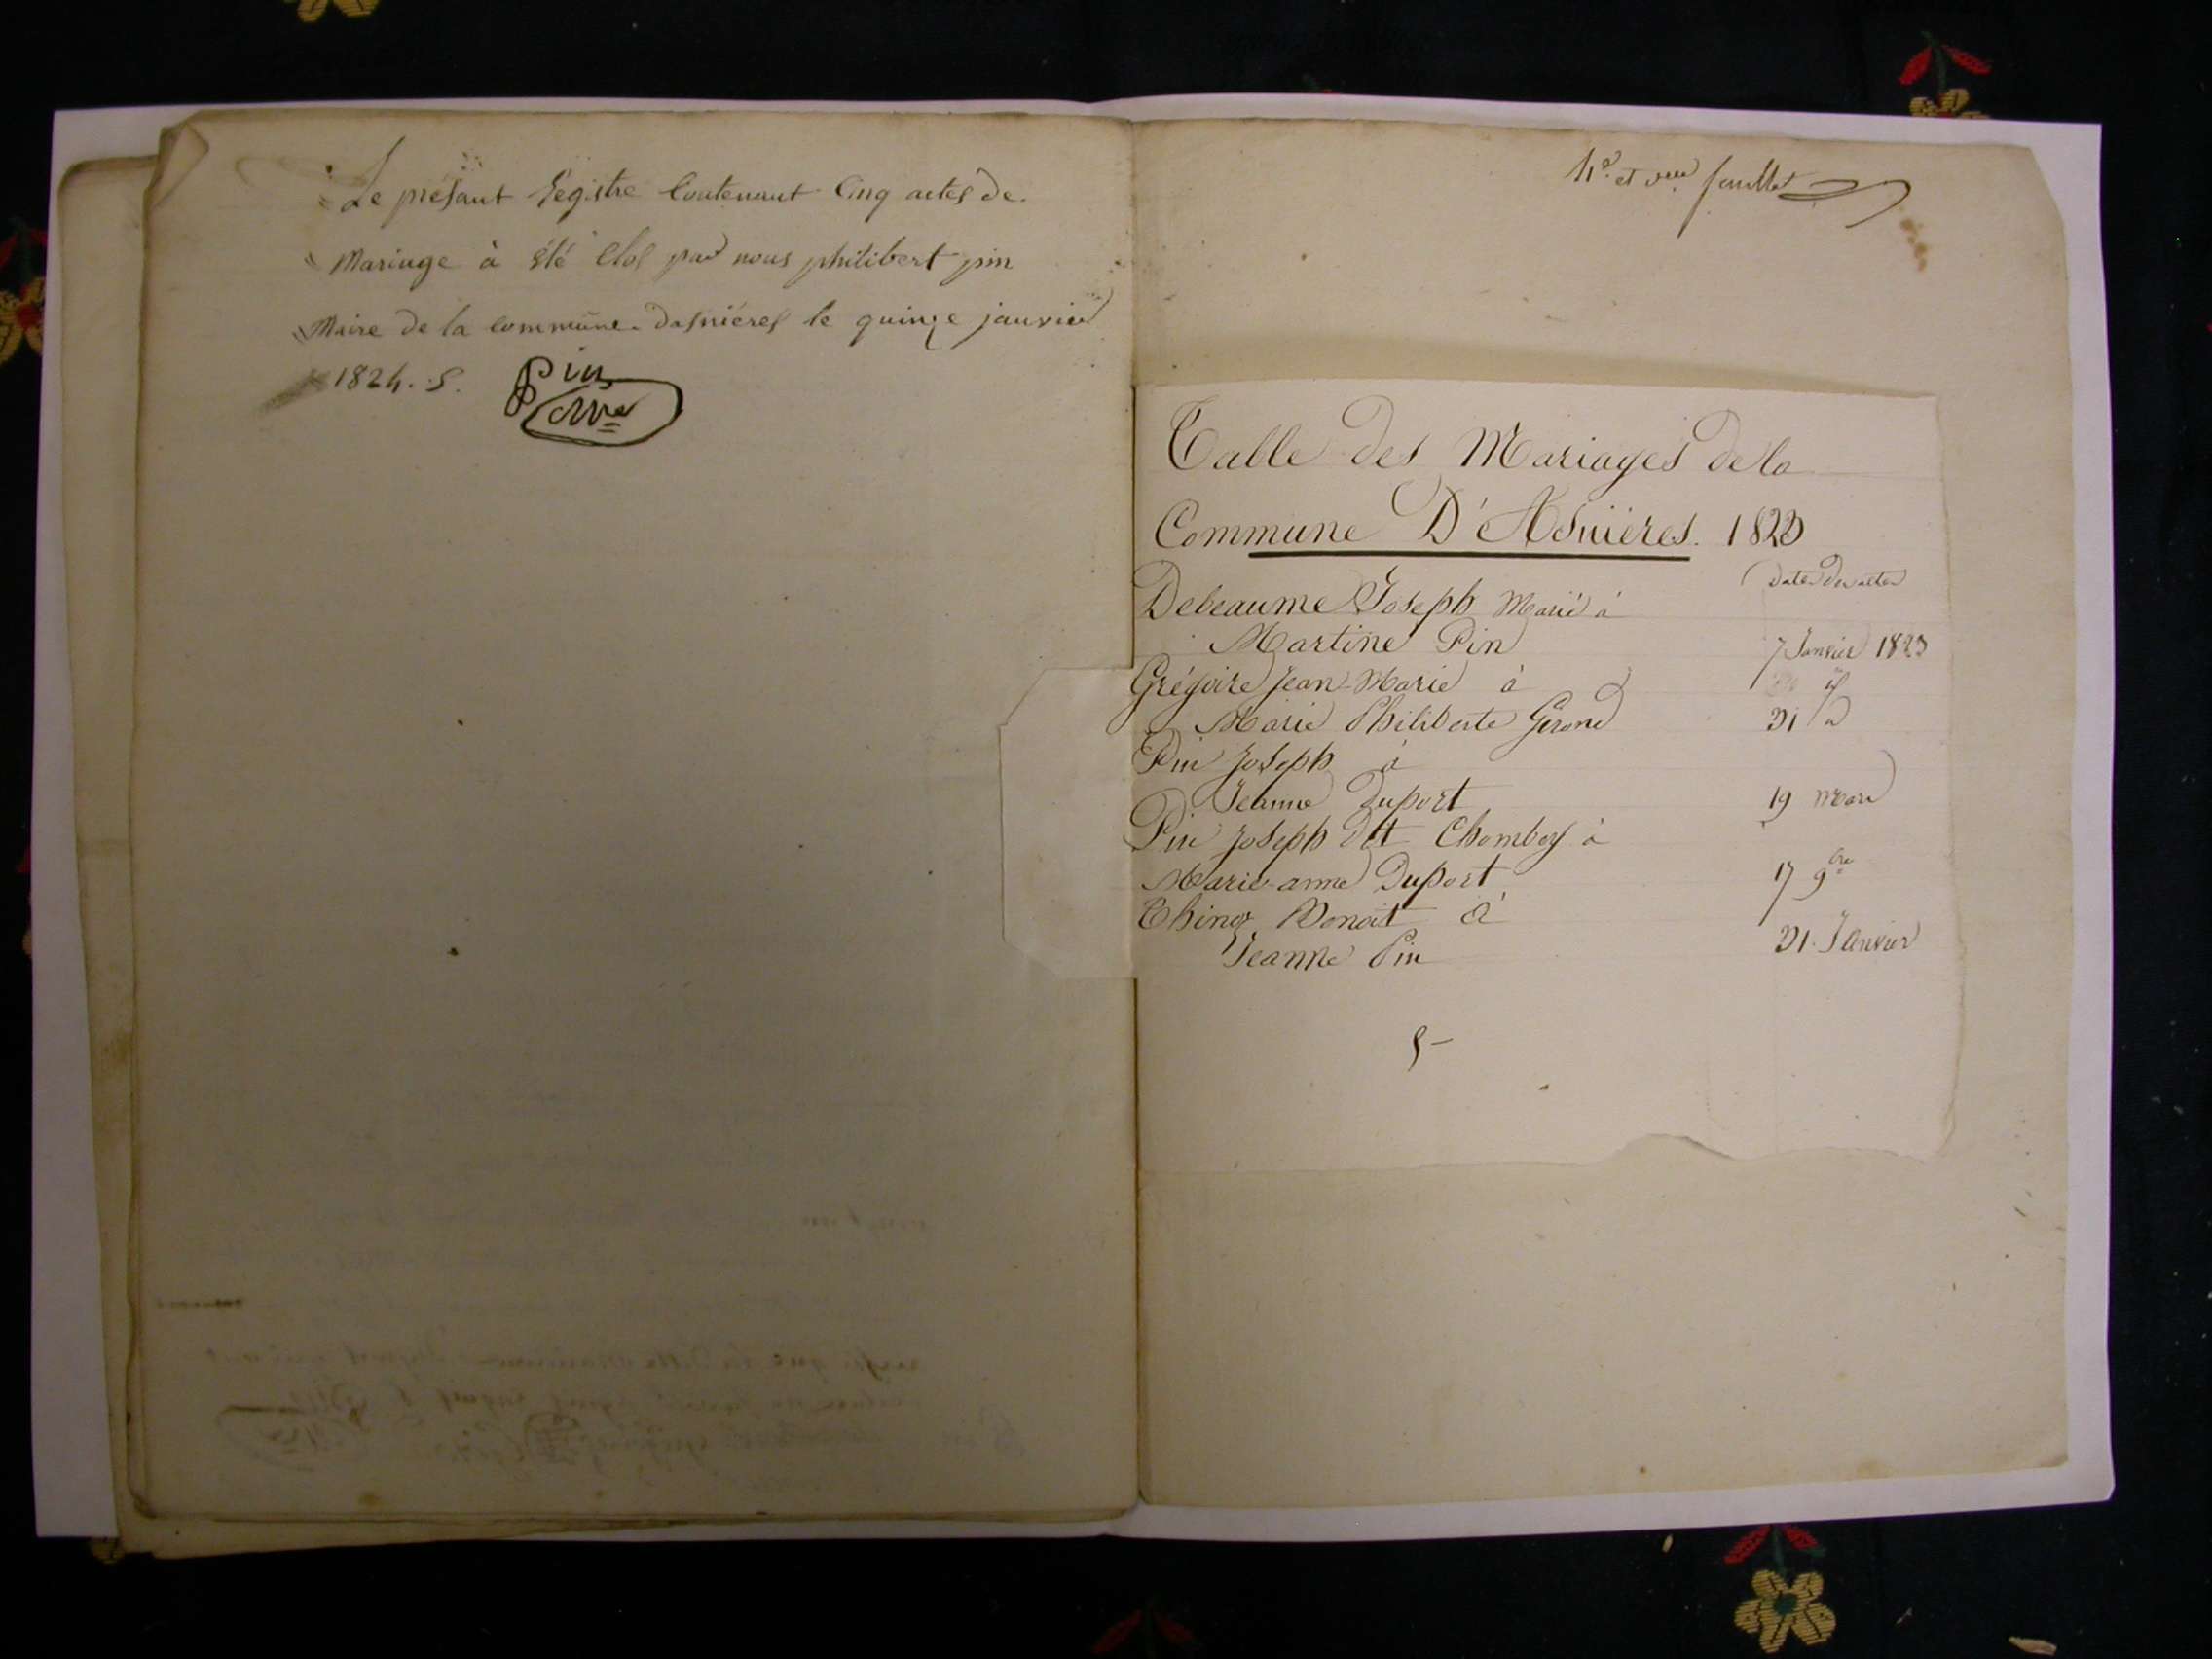 Le présant Régistre Contenant Cinq actes de
Mariage à été Clos par nous philibert pin
Maire de la commune dasniéres le quinze janvier
1824. S.
Pin
Mre
4e. et feuillet
Table des Mariages de la
Commune D'Asnières. 1823
Dates des actes
Debeaume Joseph Marié à
Martine Pin 7 Janvier 1823
Grégoire Jean-Marie à
Marie Philiberte Girond 31 d
Pin Joseph à
Jeanne Duport 19 Mars
Pin Joseph dit Chamboy à
Marie-anne Duport 17 9bre
Benoit à
Jeanne Pin 31 Janvier
5-